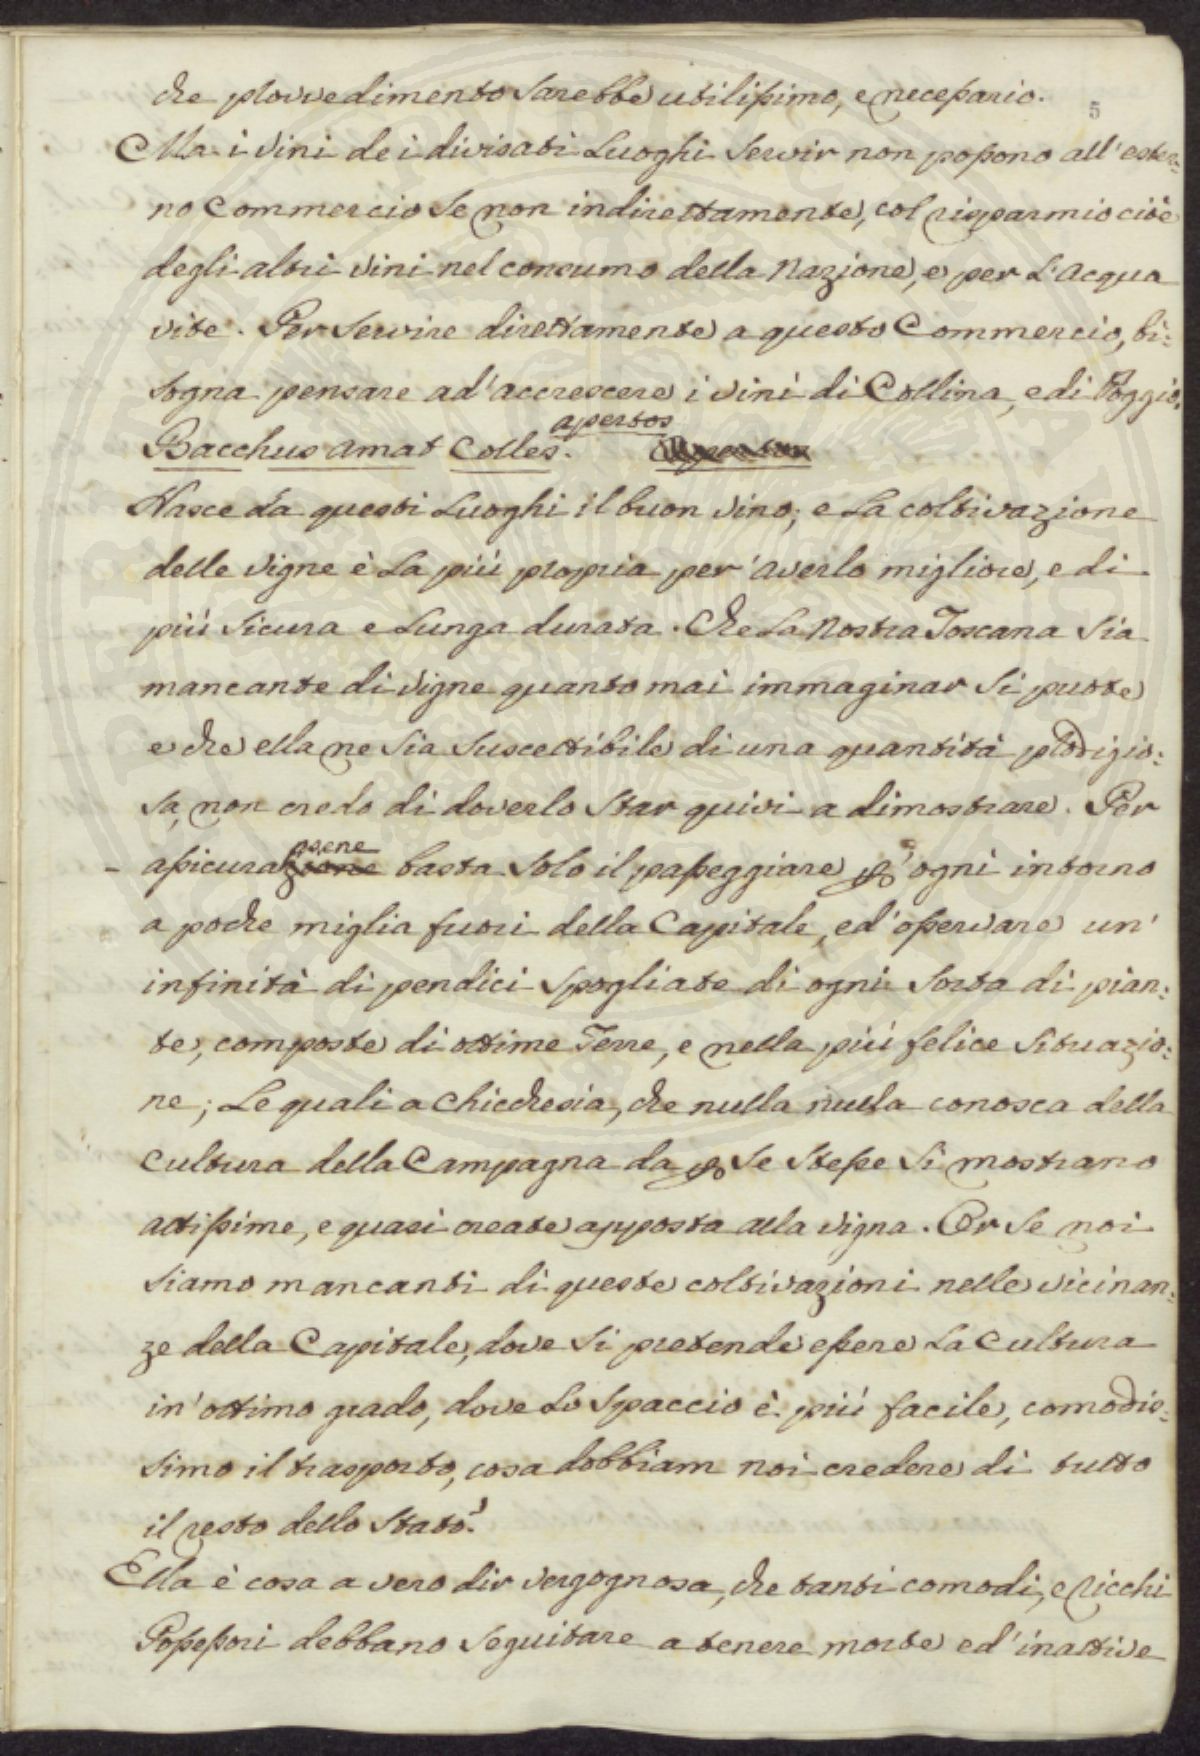 che provvedimento sarebbe utilissimo, e necessario.
5
Ma i vini dei divisati Luoghi servir non possono all'ester:
no Commercio se non indirettamente, col risparmio cioè
degli altri vini nel consumo della Nazione, e per l'Acqua
vite. Per servire direttamente a questo Commercio, bi:
sogna pensare ad'accrescere i vini di Collina, e di Poggio.
apertos
Bacchus amat Colles.
Nasce da questi Luoghi il buon vino; e la coltivazione
delle vigne è la più propria per'averlo migliore, e di
più sicura e lunga durata. Che la nostra Toscana sia
mancante di vigne quanto mai immaginar si puote
e che ella ne sia suscettibile di una quantità prodigio:
sa, non credo di doverlo star quivi a dimostrare. Per
assicurarsene basta solo il passeggiare p ogni intorno
a poche miglia fuori della Capitale, ed'osservare un'
infinità di pendici spogliate di ogni sorta di pian:
te, composte di ottime Terre, e nella più felice situazio:
ne; Le quali a chicchesia, che nulla nulla conosca della
cultura della Campagna da p se stesse si mostrano
attissime, e quasi create apposta alla vigna. Or se noi
siamo mancanti di queste coltivazioni nelle vicinan:
ze della Capitale, dove si pretende essere la cultura
in'ottimo grado, dove lo spaccio è più facile, comodis:
simo il trasporto, cosa dobbiam noi credere di tutto
il resto dello Stato?
Ella è cosa a vero dir vergognosa, che tanti comodi, e ricchi
Possessori debbano seguitare a tenere morte ed'inattive